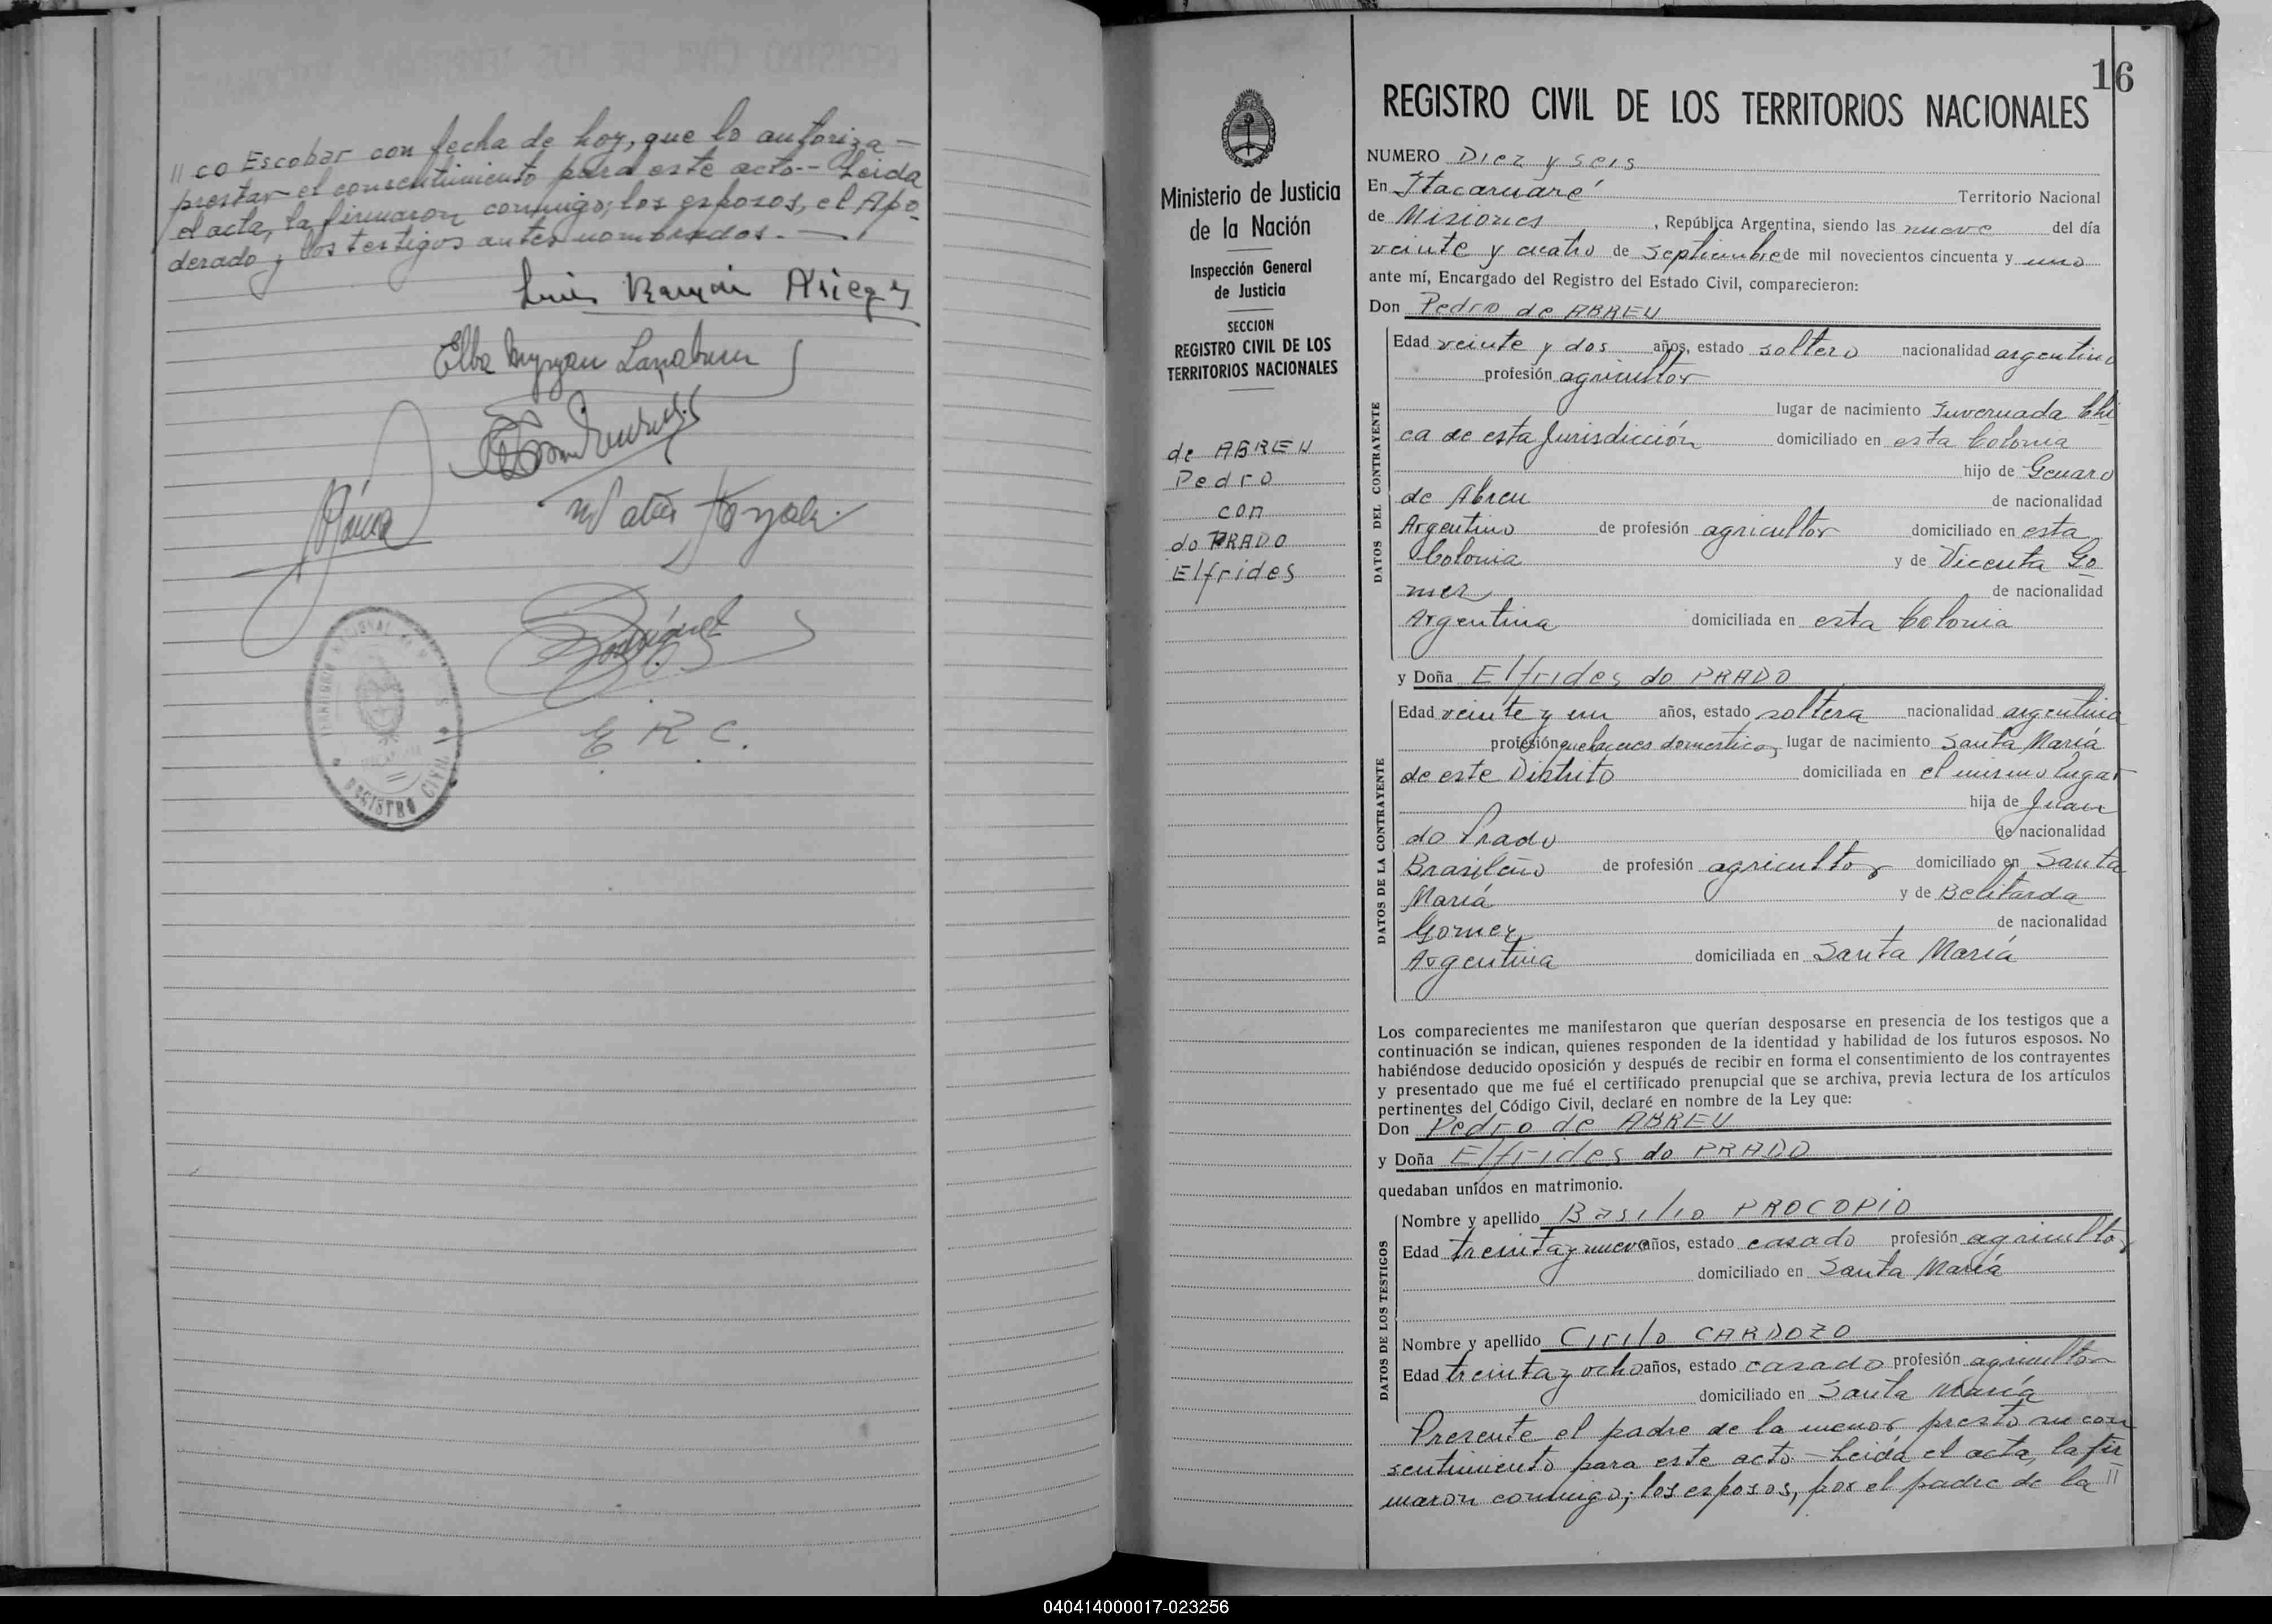 // co Escobar con fecha de hoy, que lo autoriza -
prestar el consentimiento para este acto.- Leida
el acta, la firmaron conmigo; los esposos, el Apo-
derado y los testigos antes nombrados. -
Luis Ramón
Elba
E. R. C.
REGISTRO CIVIL
16
REGISTRO CIVIL DE LOS TERRITORIOS NACIONALES
Ministerio de Justicia
de la Nación
Inspección General
de Justicia
SECCION
REGISTRO CIVIL DE LOS
TERRITORIOS NACIONALES
de ABREU
Pedro
con
do PRADO
Elfrides
NUMERO Diez y seis
En Itacaruaré Territorio Nacional
de Misiones, República Argentina, siendo las nueve del día
veinte y cuatro de Septiembre de mil novecientos cincuenta y uno
ante mí, Encargado del Registro del Estado Civil, comparecieron:
Don Pedro de ABREU
DATOS DEL CONTRAYENTE
Edad veinte y dos años, estado soltero nacionalidad argentino
profesión agricultor
lugar de nacimiento Invernada Chi
ca de esta Jurisdicción domiciliado en esta Colonia
hijo de Genaro
de Abreu de nacionalidad
Argentino de profesión agricultor domiciliado en esta
Colonia y de Vicenta Go
mez de nacionalidad
Argentina domiciliada en esta Colonia
y Doña Elfrides do PRADO
DATOS DE LA CONTRAYENTE
Edad veinte y un años, estado soltera nacionalidad argentina
profesión quehaceres domesticos, lugar de nacimiento Santa María
de este Distrito domiciliada en el mismo lugar
hija de Juan
do Prado de nacionalidad
Brasileño de profesión agricultor domiciliado en Santa
María y de Belitarda
Gomez de nacionalidad
Argentina domiciliada en Santa María
Los comparecientes me manifestaron que querían desposarse en presencia de los testigos que a
continuación se indican, quienes responden de la identidad y habilidad de los futuros esposos. No
habiéndose deducido oposición y después de recibir en forma el consentimiento de los contrayentes
y presentado que me fué el certificado prenupcial que se archiva, previa lectura de los artículos
pertinentes del Código Civil, declaré en nombre de la Ley que:
Don Pedro de ABREU
y Doña Elfrides do PRADO
quedaban unidos en matrimonio.
DATOS DE LOS TESTIGOS
Nombre y apellido Basilio PROCOPIO
Edad treinta y nueve años, estado casado profesión agricultor
domiciliado en Santa María
Nombre y apellido Cirilo CARDOZO
Edad treinta y ocho años, estado casado profesión agricultor
domiciliado en Santa María
Presente el padre de la menor prestó su con
sentimiento para este acto.- Leida el acta, la fir
maron conmigo; los esposos, por el padre de la //
040414000017-023256